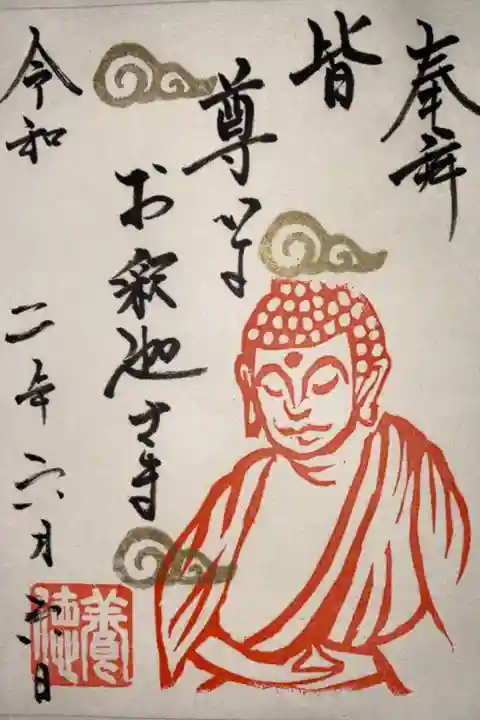 奉拜
皆
尊い
お釈迦さま
令和二年六月 日
養徳